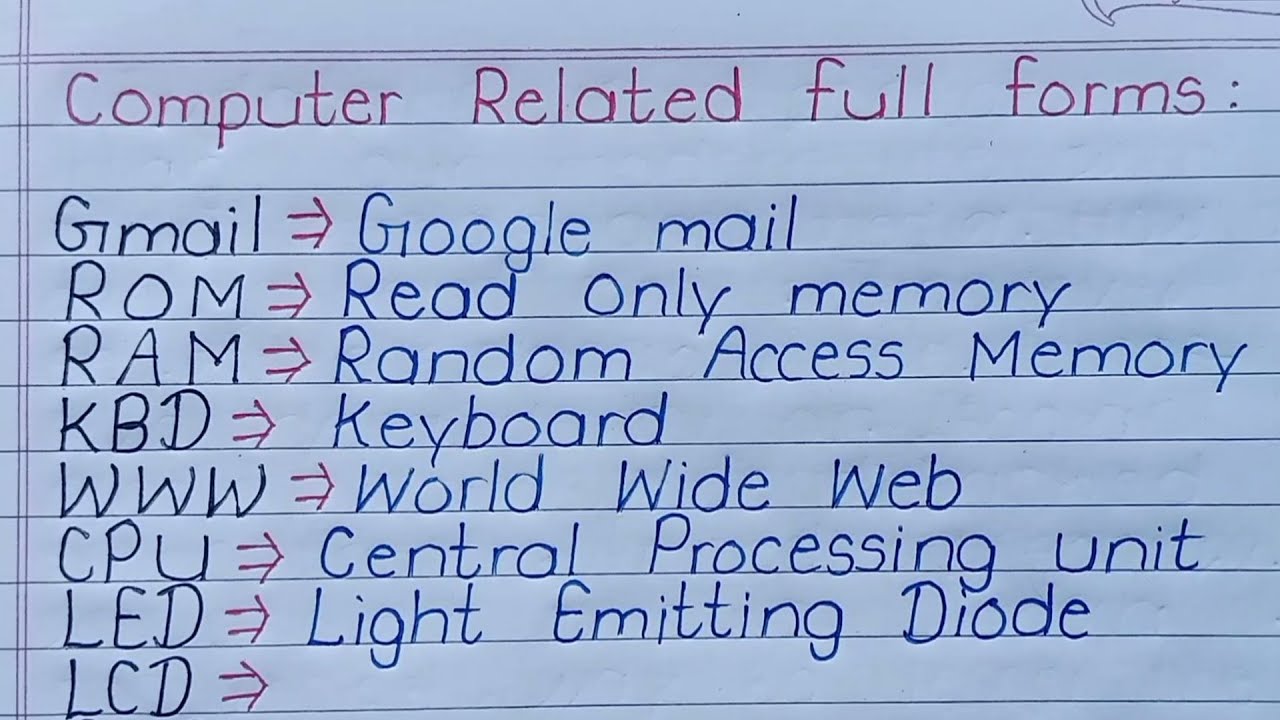 Computer Related full forms:
Gmail ⇒ Google mail
ROM ⇒ Read only memory
RAM ⇒ Random Access Memory
KBD ⇒ Keyboard
WWW ⇒ World Wide Web
CPU ⇒ Central Processing unit
LED ⇒ Light Emitting Diode
LCD ⇒